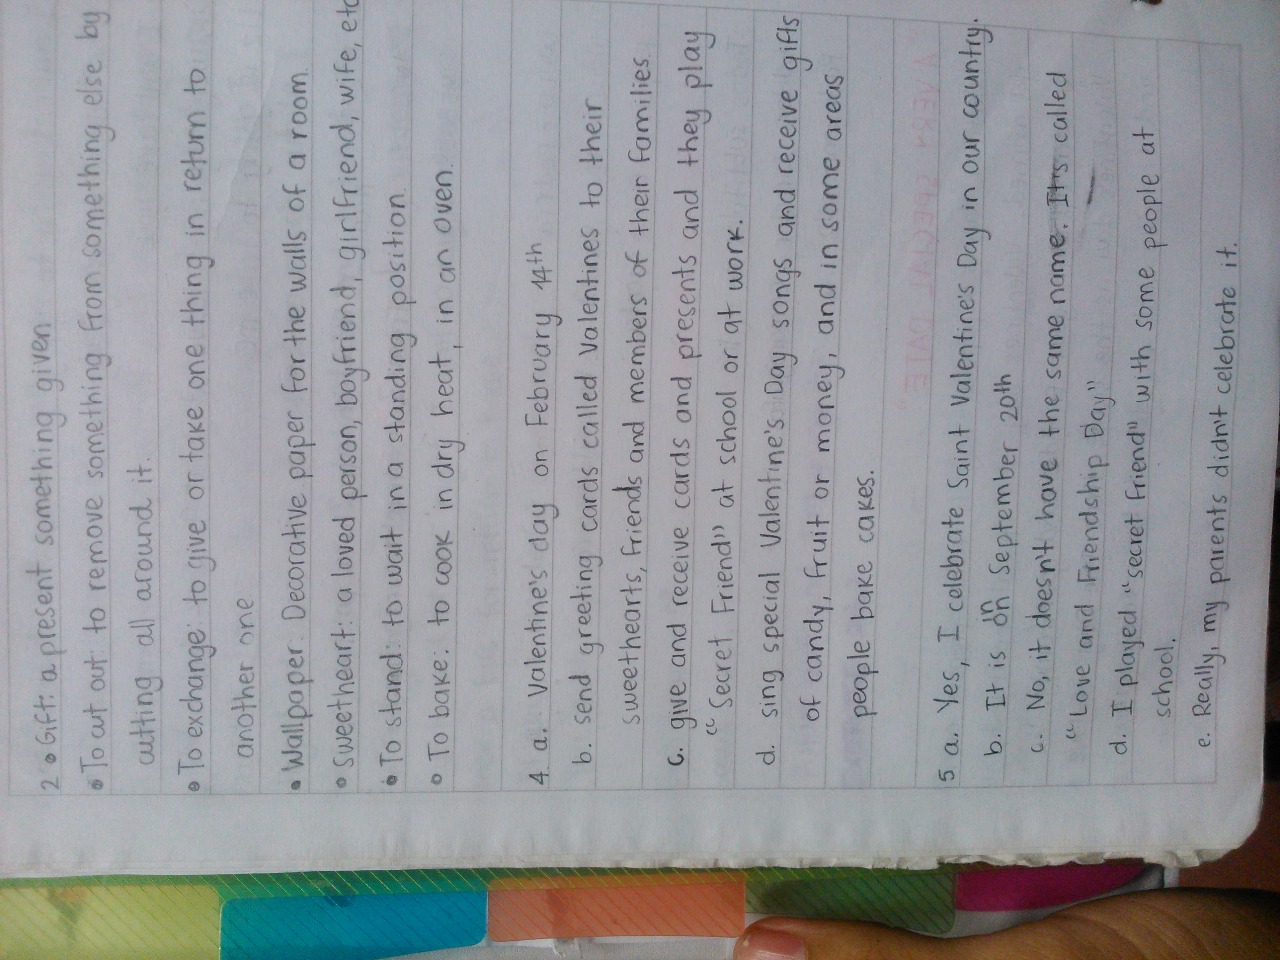 2 • Gift: a present something given
• To cut out: to remove something from something else by
cutting all around it.
• To exchange: to give or take one thing in return to
another one
• Wallpaper: Decorative paper for the walls of a room.
• Sweetheart: a loved person, boyfriend, girlfriend, wife, etc
• To stand: to wait in a standing position
• To bake: to cook in dry heat, in an oven.
4 a. Valentine's day on February 14th
b. send greeting cards called Valentines to their
sweethearts, friends and members of their families
c. give and receive cards and presents and they play
"Secret Friend" at school or at work.
d. sing special Valentine's Day songs and receive gifts
of candy, fruit or money, and in some areas
people bake cakes.
5 a. Yes, I celebrate Saint Valentine's Day in our country.
b. It is on September 20th
c. No, it doesn't have the same name. It's called
"Love and Friendship Day"
d. I played "secret friend" with some people at
school.
e. Really, my parents didn't celebrate it.